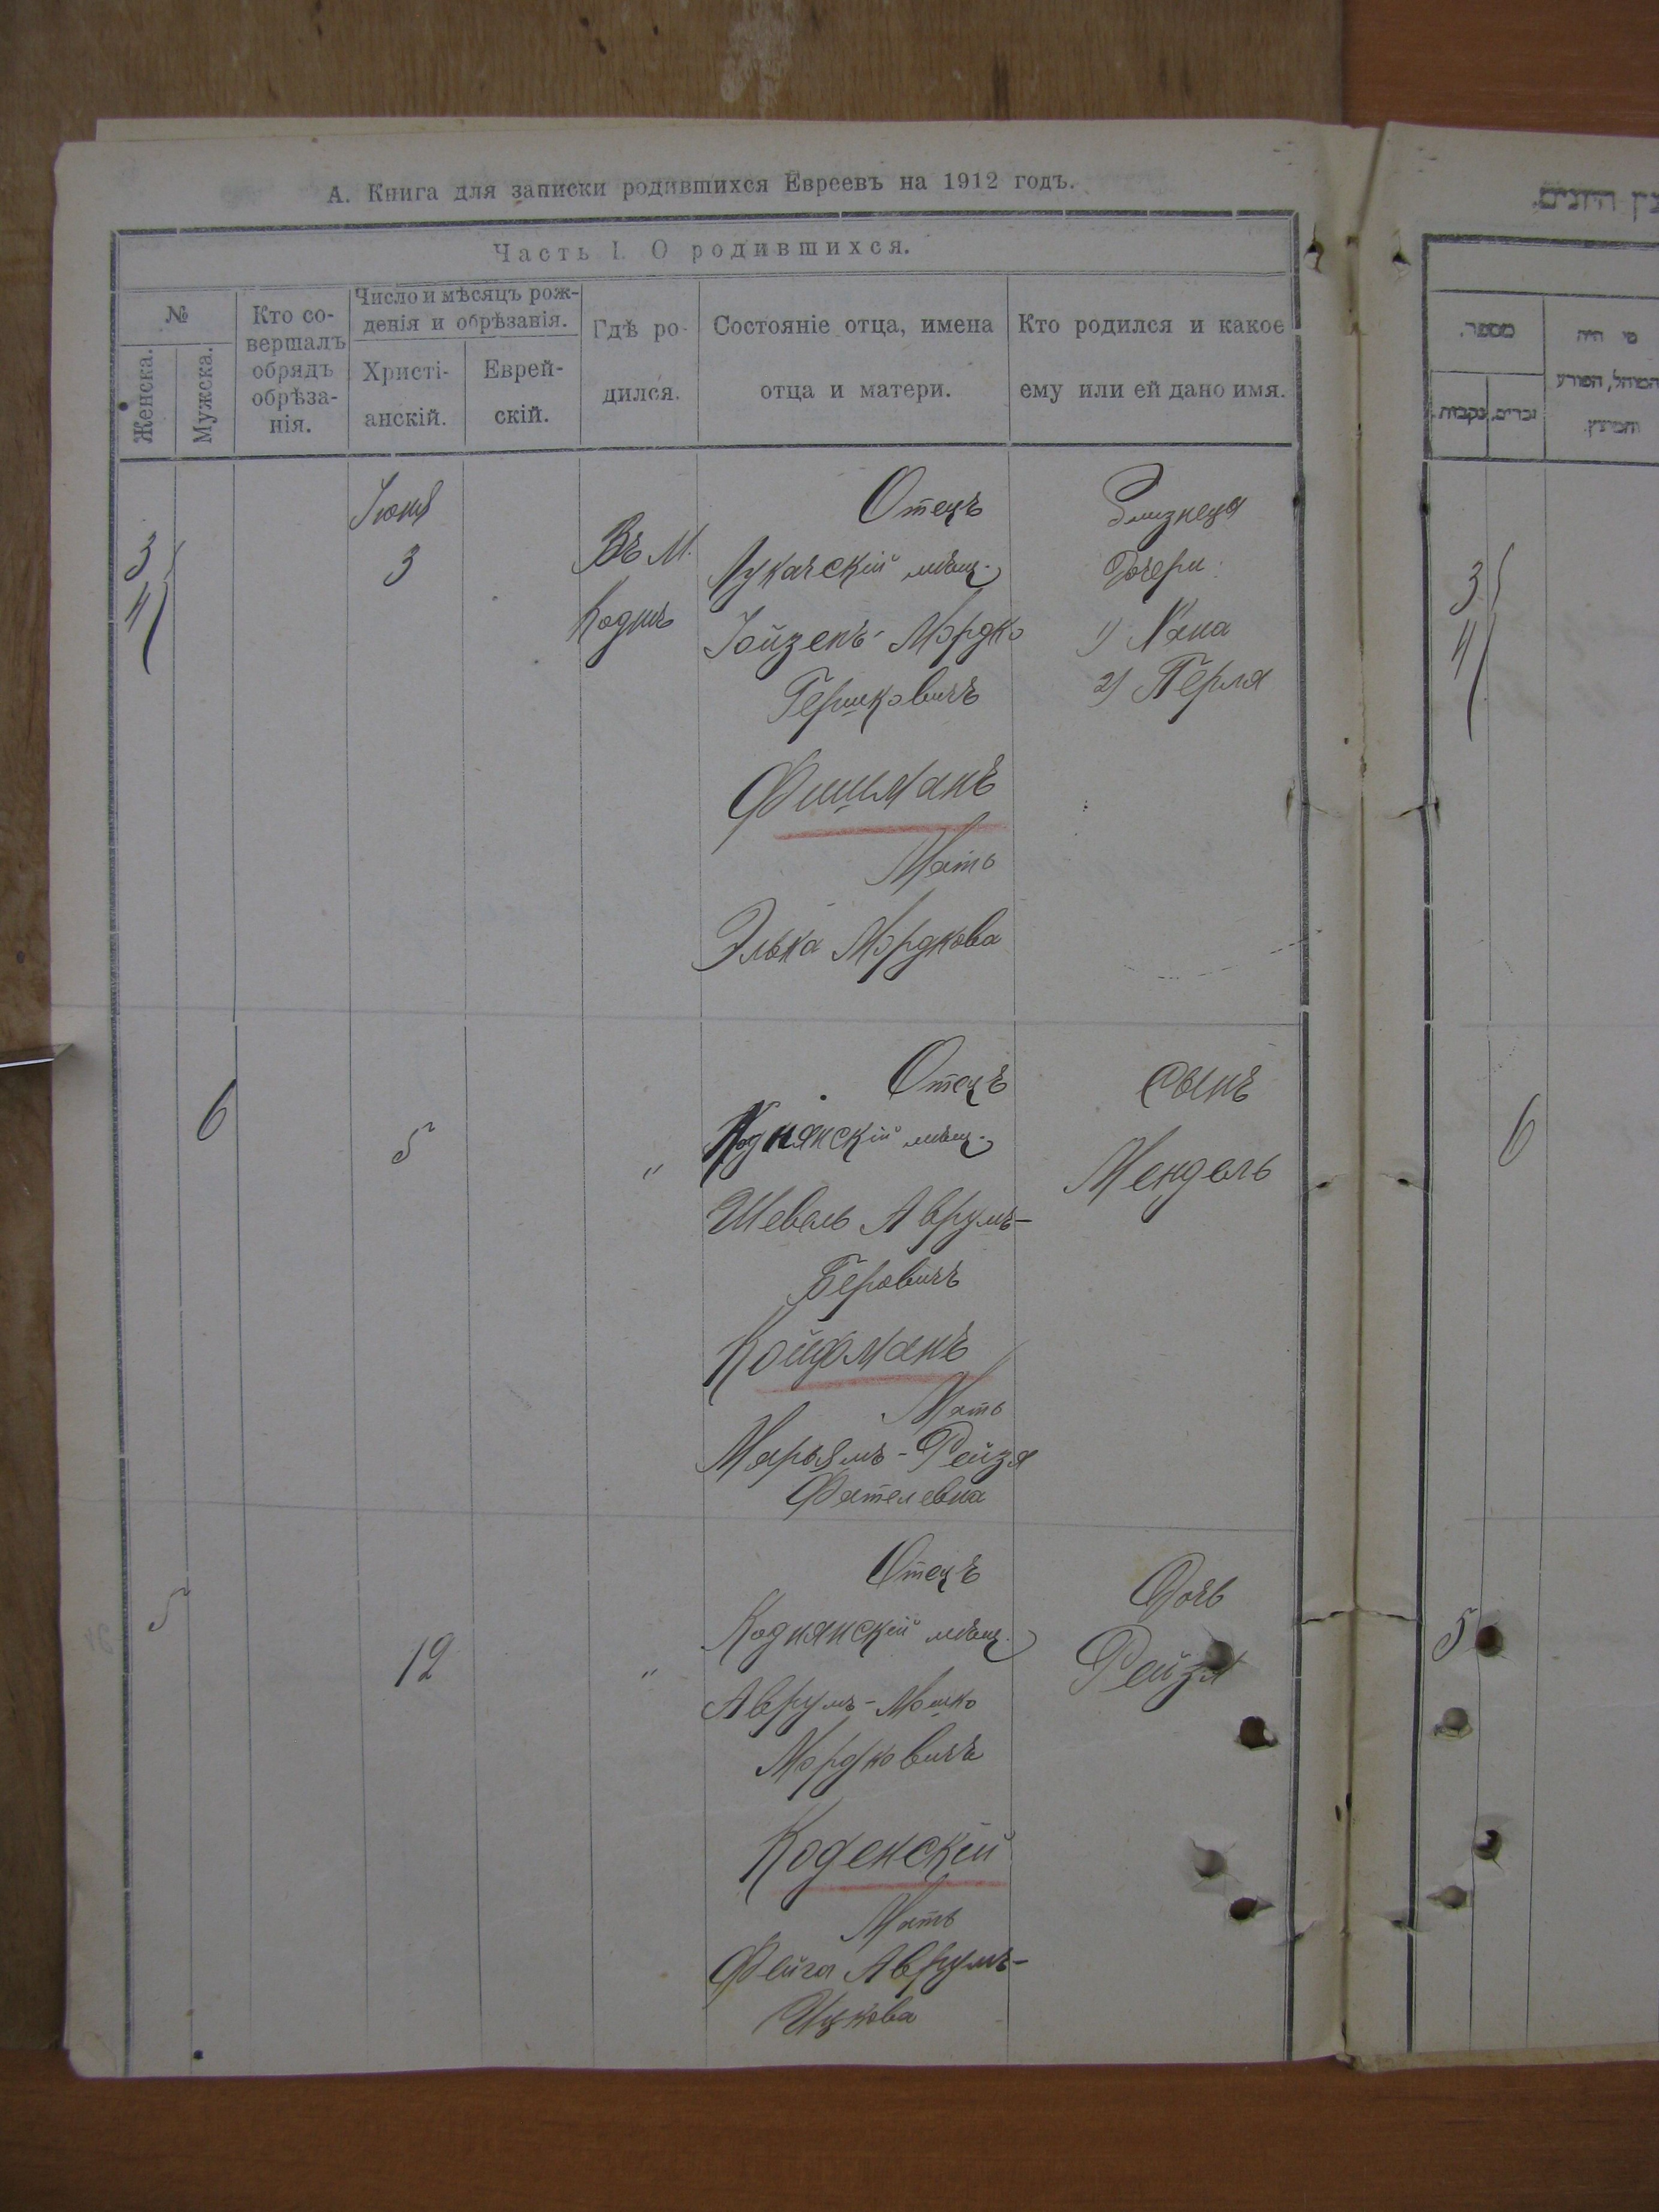 А. Книга для записки родившихся Евреевъ на 1912 годъ.
Часть I. О родившихся.
№
Женска.
Мужска.
Кто со-
вершалъ
обрядъ
обрѣза-
нія.
Число и мѣсяцъ рож-
денія и обрѣзанія.
Христі-
анскій.
Еврей-
скій.
Гдѣ ро-
дился.
Состояніе отца, имена
отца и матери.
Кто родился и какое
ему или ей дано имя.
3
4
Іюня
3
Въ м.
Кодня
Отецъ
мѣщ.
Мордко
Гершковичъ
Фишманъ
Мать
Элька Мордкова
Близнецы
Дочери:
1) Хана
2) Перля
6
5
"
Отецъ
Коднянскій мѣщ.
Шевель Аврумъ-
Беровичъ
Койфманъ
Мать
Марьямъ-Рейзя
Фателевна
Сынъ
Мендель
5
12
"
Отецъ
Коднянскій мѣщ.
Аврумъ-Мошко
Мордковичъ
Коденскій
Мать
Фейга Аврумъ-
Ицкова
Дочь
Рейзя
מספר.
זכרים.
נקבות.
מי היה
המוהל, הפורע
והמוצץ.
3
4
6
5